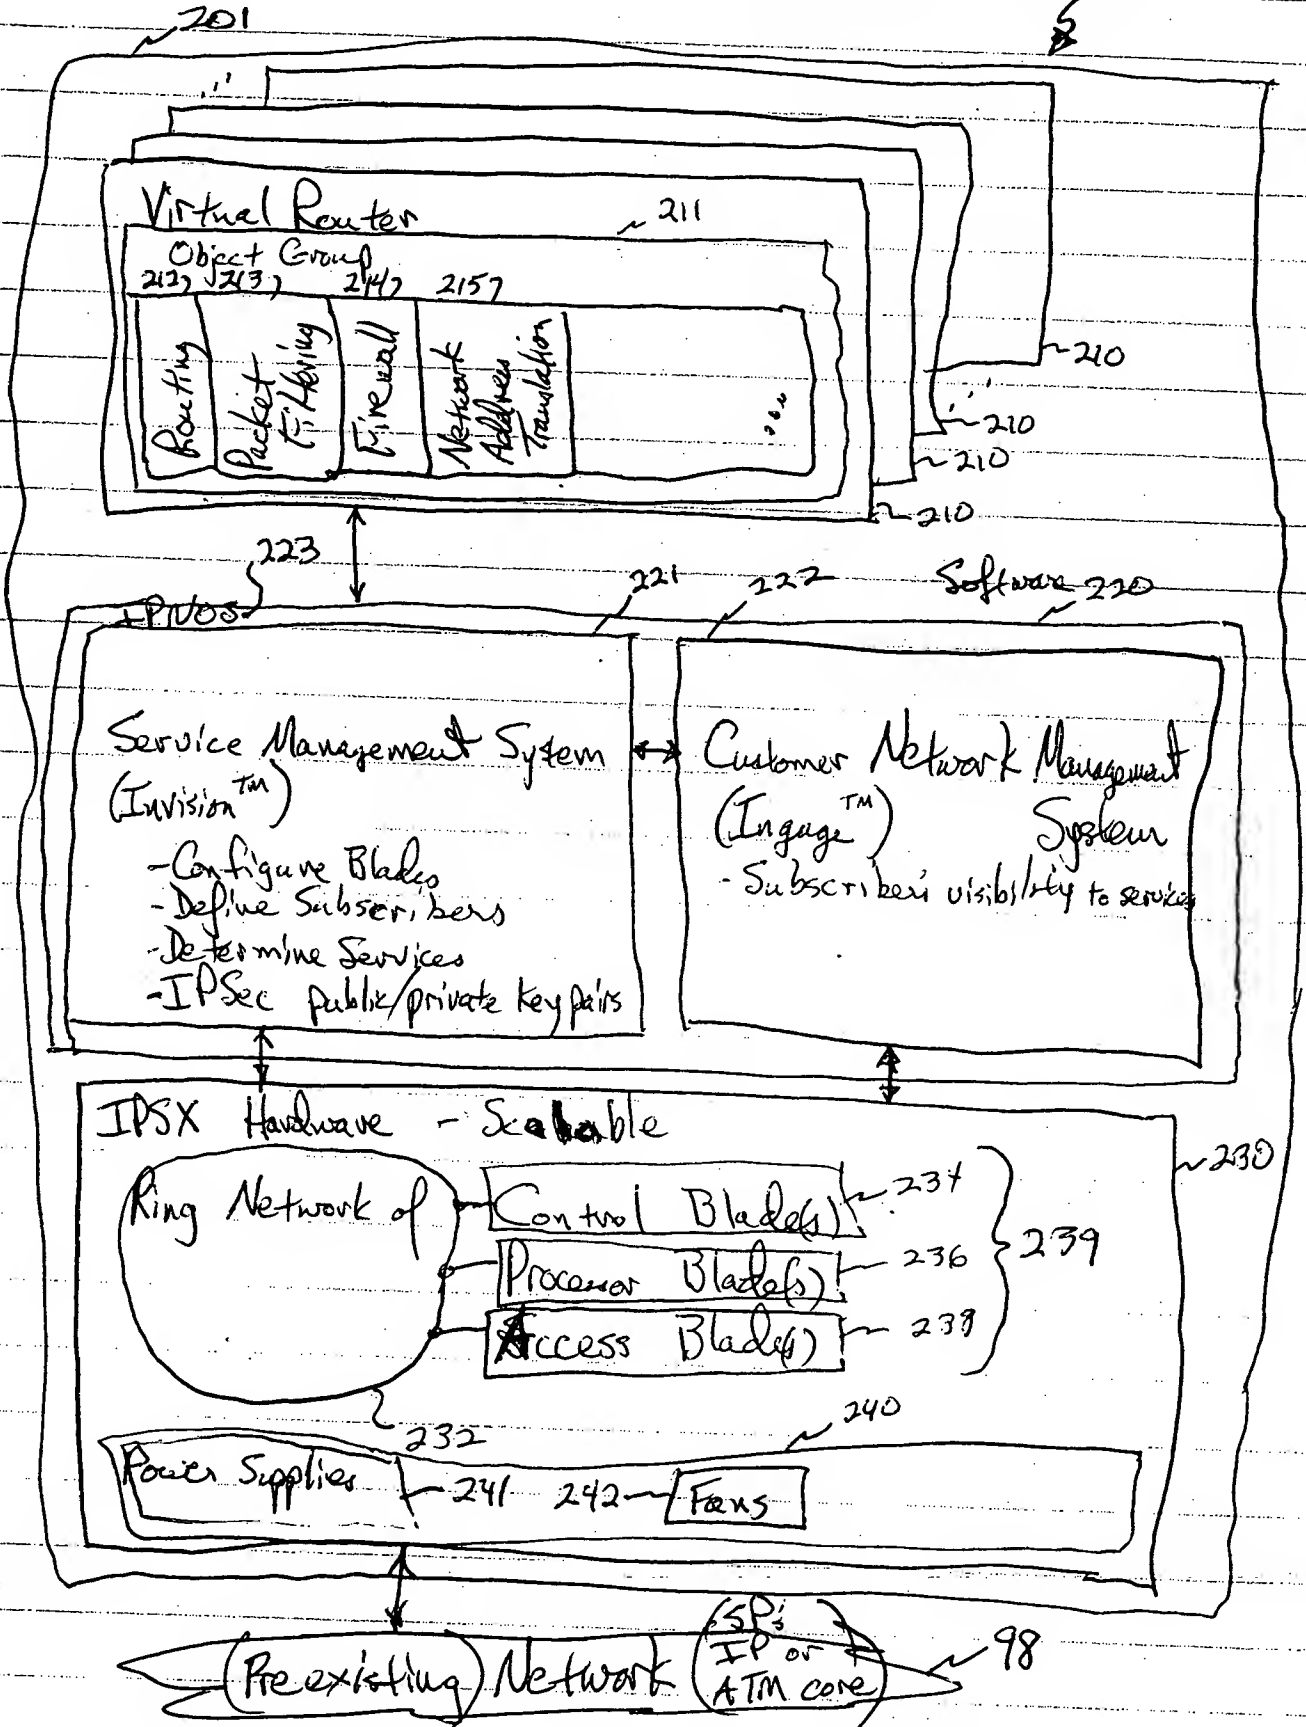 201
Virtual Router
211
Object Group
212 213 214 215
Routing
Packet
Filtering
Firewall
Network
Address
Translation
210
210
210
210
223
221
222
Software 220
IPNOS
Service Management System
(Invision™)
-Configure Blades
-Define Subscribers
-Determine Services
-IPSec public/private key pairs
Customer Network Management
(Ingage™) System
- Subscriber's visibility to services
IPSX Hardware - Scalable
230
Ring Network of
Control Blade(s)
234
Processor Blade(s)
236
239
Access Blade(s)
238
232
240
Power Supplies
241
242
Fans
(Preexisting) Network (SP's
IP or
ATM core)
98